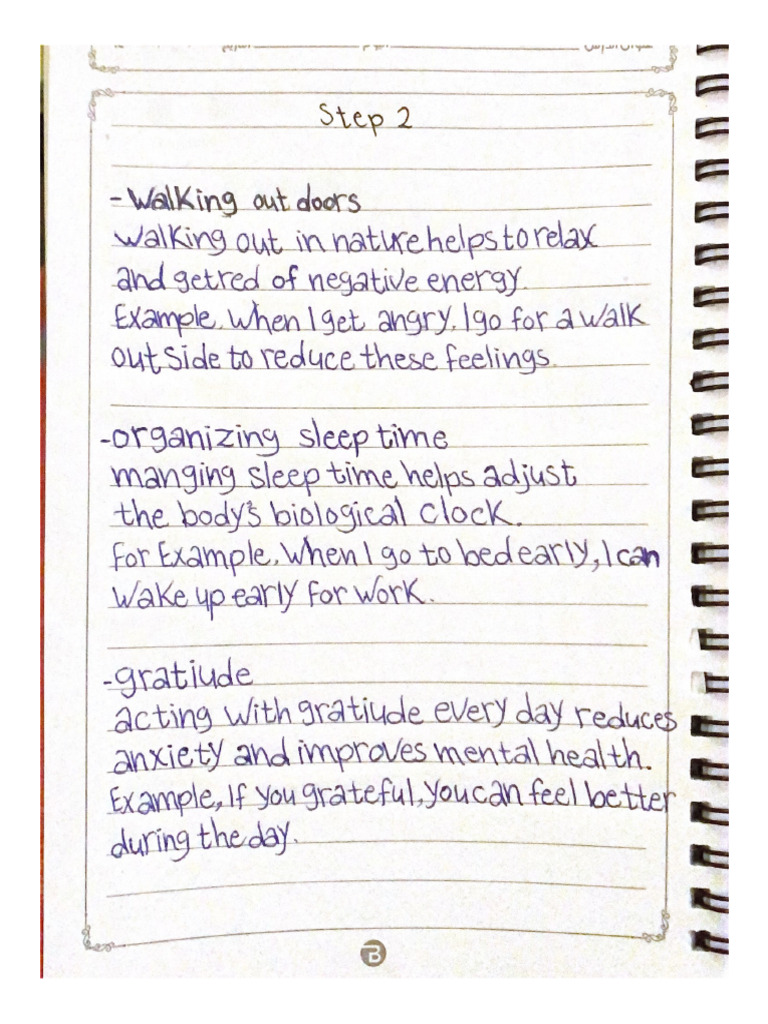 Step 2
- Walking out doors
Walking out in nature helps to relax
and get red of negative energy.
Example, When I get angry, I go for a walk
out side to reduce these feelings.
- organizing sleep time
manging sleep time helps adjust
the body's biological clock.
for Example, When I go to bed early, I can
wake up early for work.
- gratiude
acting with gratiude every day reduces
anxiety and improves mental health.
Example, If you grateful, you can feel better
during the day.